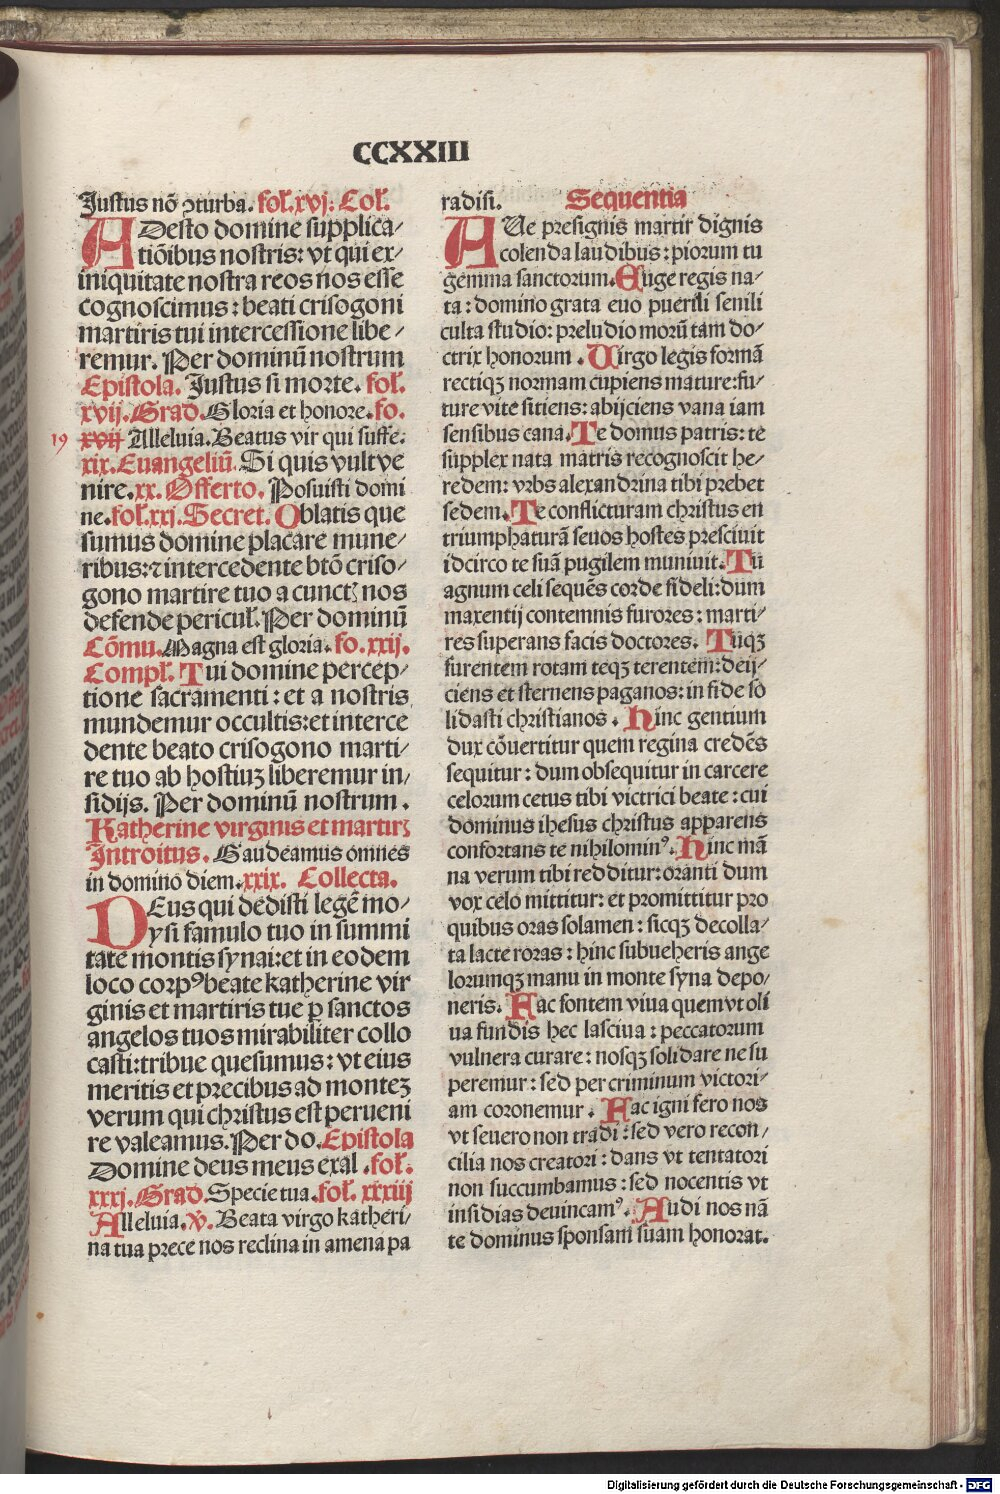 CCXXIII
Justus nō ꝯturba. fol̄.xvj. Col̄.
ADesto domine supplica/
tiōibus nostris: vt qui ex/
iniquitate nostra reos nos esse
cognoscimus: beati crisogoni
martiris tui intercessione libe/
remur. Per dominū nostrum
Epistola. Justus si morte. fol̄.
xvij. Grad. Gloria et honore. fo.
19 xvij Alleluia. Beatus vir qui suffe.
xix. Euangeliū. Si quis vult ve
nire. xx. Offerto. Posuisti domi
ne. fol̄.xxj. Secret. Oblatis que
sumus domine placare mune/
ribus: ⁊ intercedente btō criso/
gono martire tuo a cunctꝭ nos
defende pericul̄. Per dominū
Cōmu. Magna est gloria. fo.xxij.
Compl̄. Tui domine percep/
tione sacramenti: et a nostris
mundemur occultis: et interce
dente beato crisogono marti/
re tuo ab hostiuꝫ liberemur in/
sidijs. Per dominū nostrum.
Katherine virginis et martirꝭ
Introitus. Gaudeamus omnes
in domino diem. xxix. Collecta.
DEus qui dedisti legē mo/
ysi famulo tuo in summi
tate montis synai: et in eodem
loco corpꝰ beate katherine vir
ginis et martiris tue ꝑ sanctos
angelos tuos mirabiliter collo
casti: tribue quesumus: vt eius
meritis et precibus ad monteꝫ
verum qui christus est perueni
re valeamus. Per do. Epistola
Domine deus meus exal. fol̄.
xxxj. Grad. Specie tua. fol̄. xxxiij
Alleluia. ℣. Beata virgo katheri/
na tua prece nos reclina in amena pa
radisi. Sequentia
AUe presignis martir dignis
colenda laudibus: piorum tu
gemma sanctorum. Euge regis na/
ta: domino grata euo puerili senili
culta studio: preludio morū tam do/
ctrix honorum. Uirgo legis formā
rectiqꝫ normam cupiens mature: fu/
ture vite sitiens: abijciens vana iam
sensibus cana. Te domus patris: te
supplex nata matris recognoscit he/
redem: vrbs alexandrina tibi prebet
sedem. Te conflicturam christus en
triumphaturā seuos hostes presciuit
idcirco te suā pugilem muniuit. Tu
agnum celi sequēs corde fideli: dum
maxentij contemnis furores: marti/
res superans facis doctores. Tuqꝫ
furentem rotam teqꝫ terentem: deij/
ciens et sternens paganos: in fide so
lidasti christianos. Hinc gentium
dux cōuertitur quem regina credēs
sequitur: dum obsequitur in carcere
celorum cetus tibi victrici beate: cui
dominus ihesus christus apparens
confortans te nihilominꝰ. Hinc mā
na verum tibi redditur: oranti dum
vox celo mittitur: et promittitur pro
quibus oras solamen: sicqꝫ decolla/
ta lacte roras: hinc subueheris ange
lorumqꝫ manu in monte syna depo/
neris. Fac fontem viua quem vt oli
ua fundis hec lasciua: peccatorum
vulnera curare: nosqꝫ solidare ne su
peremur: sed per criminum victori/
am coronemur. Fac igni fero nos
vt seuero non tradi: sed vero recon/
cilia nos creatori: dans vt tentatori
non succumbamus: sed nocentis vt
insidias deuincamꝰ. Audi nos nā
te dominus sponsam suam honorat.
Digitalisierung gefördert durch die Deutsche Forschungsgemeinschaft - DFG